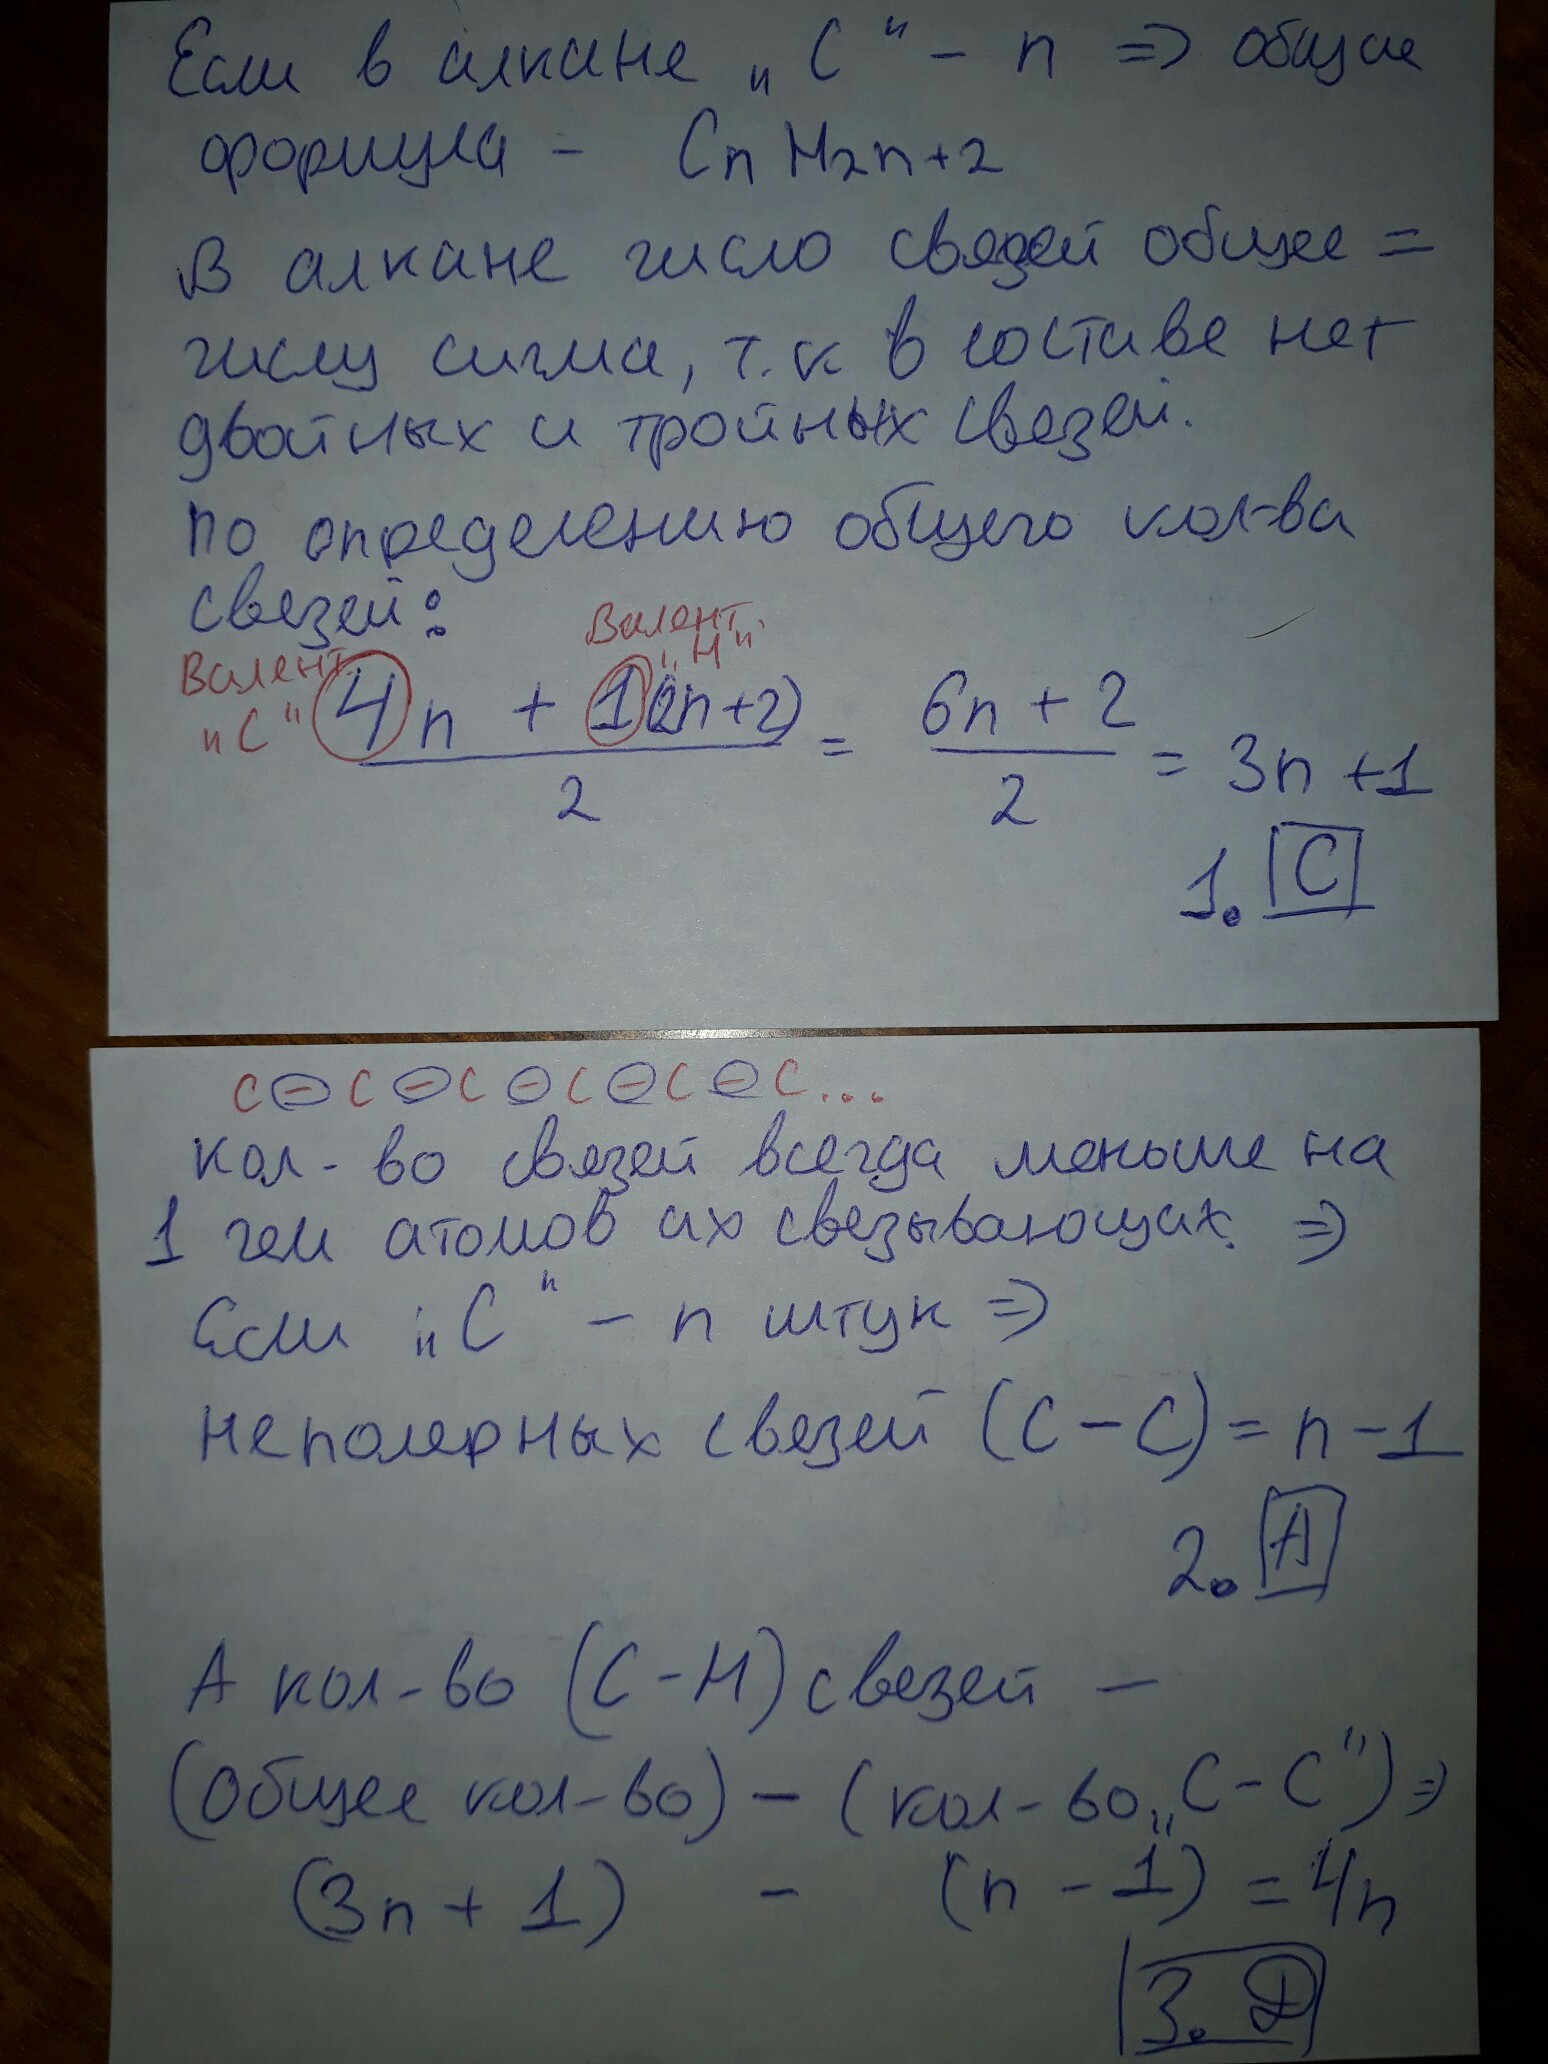 Если в алкане „С“ - n => общая
формула - CnH2n+2
В алкане число связей общее =
числу сигма, т.к в составе нет
двойных и тройных связей.
по определению общего кол-ва
связей:
Валент. „С“ Валент. „Н“
4n + 1(2n+2) / 2 = 6n + 2 / 2 = 3n + 1
1. C
С - С - С - С - С - С...
кол-во связей всегда меньше на
1 чем атомов их связывающих. =>
Если „С“ - n штук =>
неполярных связей (С - С) = n - 1
2. А
А кол-во (С-Н) связей -
(общее кол-во) - (кол-во „С-С“) =>
(3n + 1) - (n - 1) = 4n
3. D